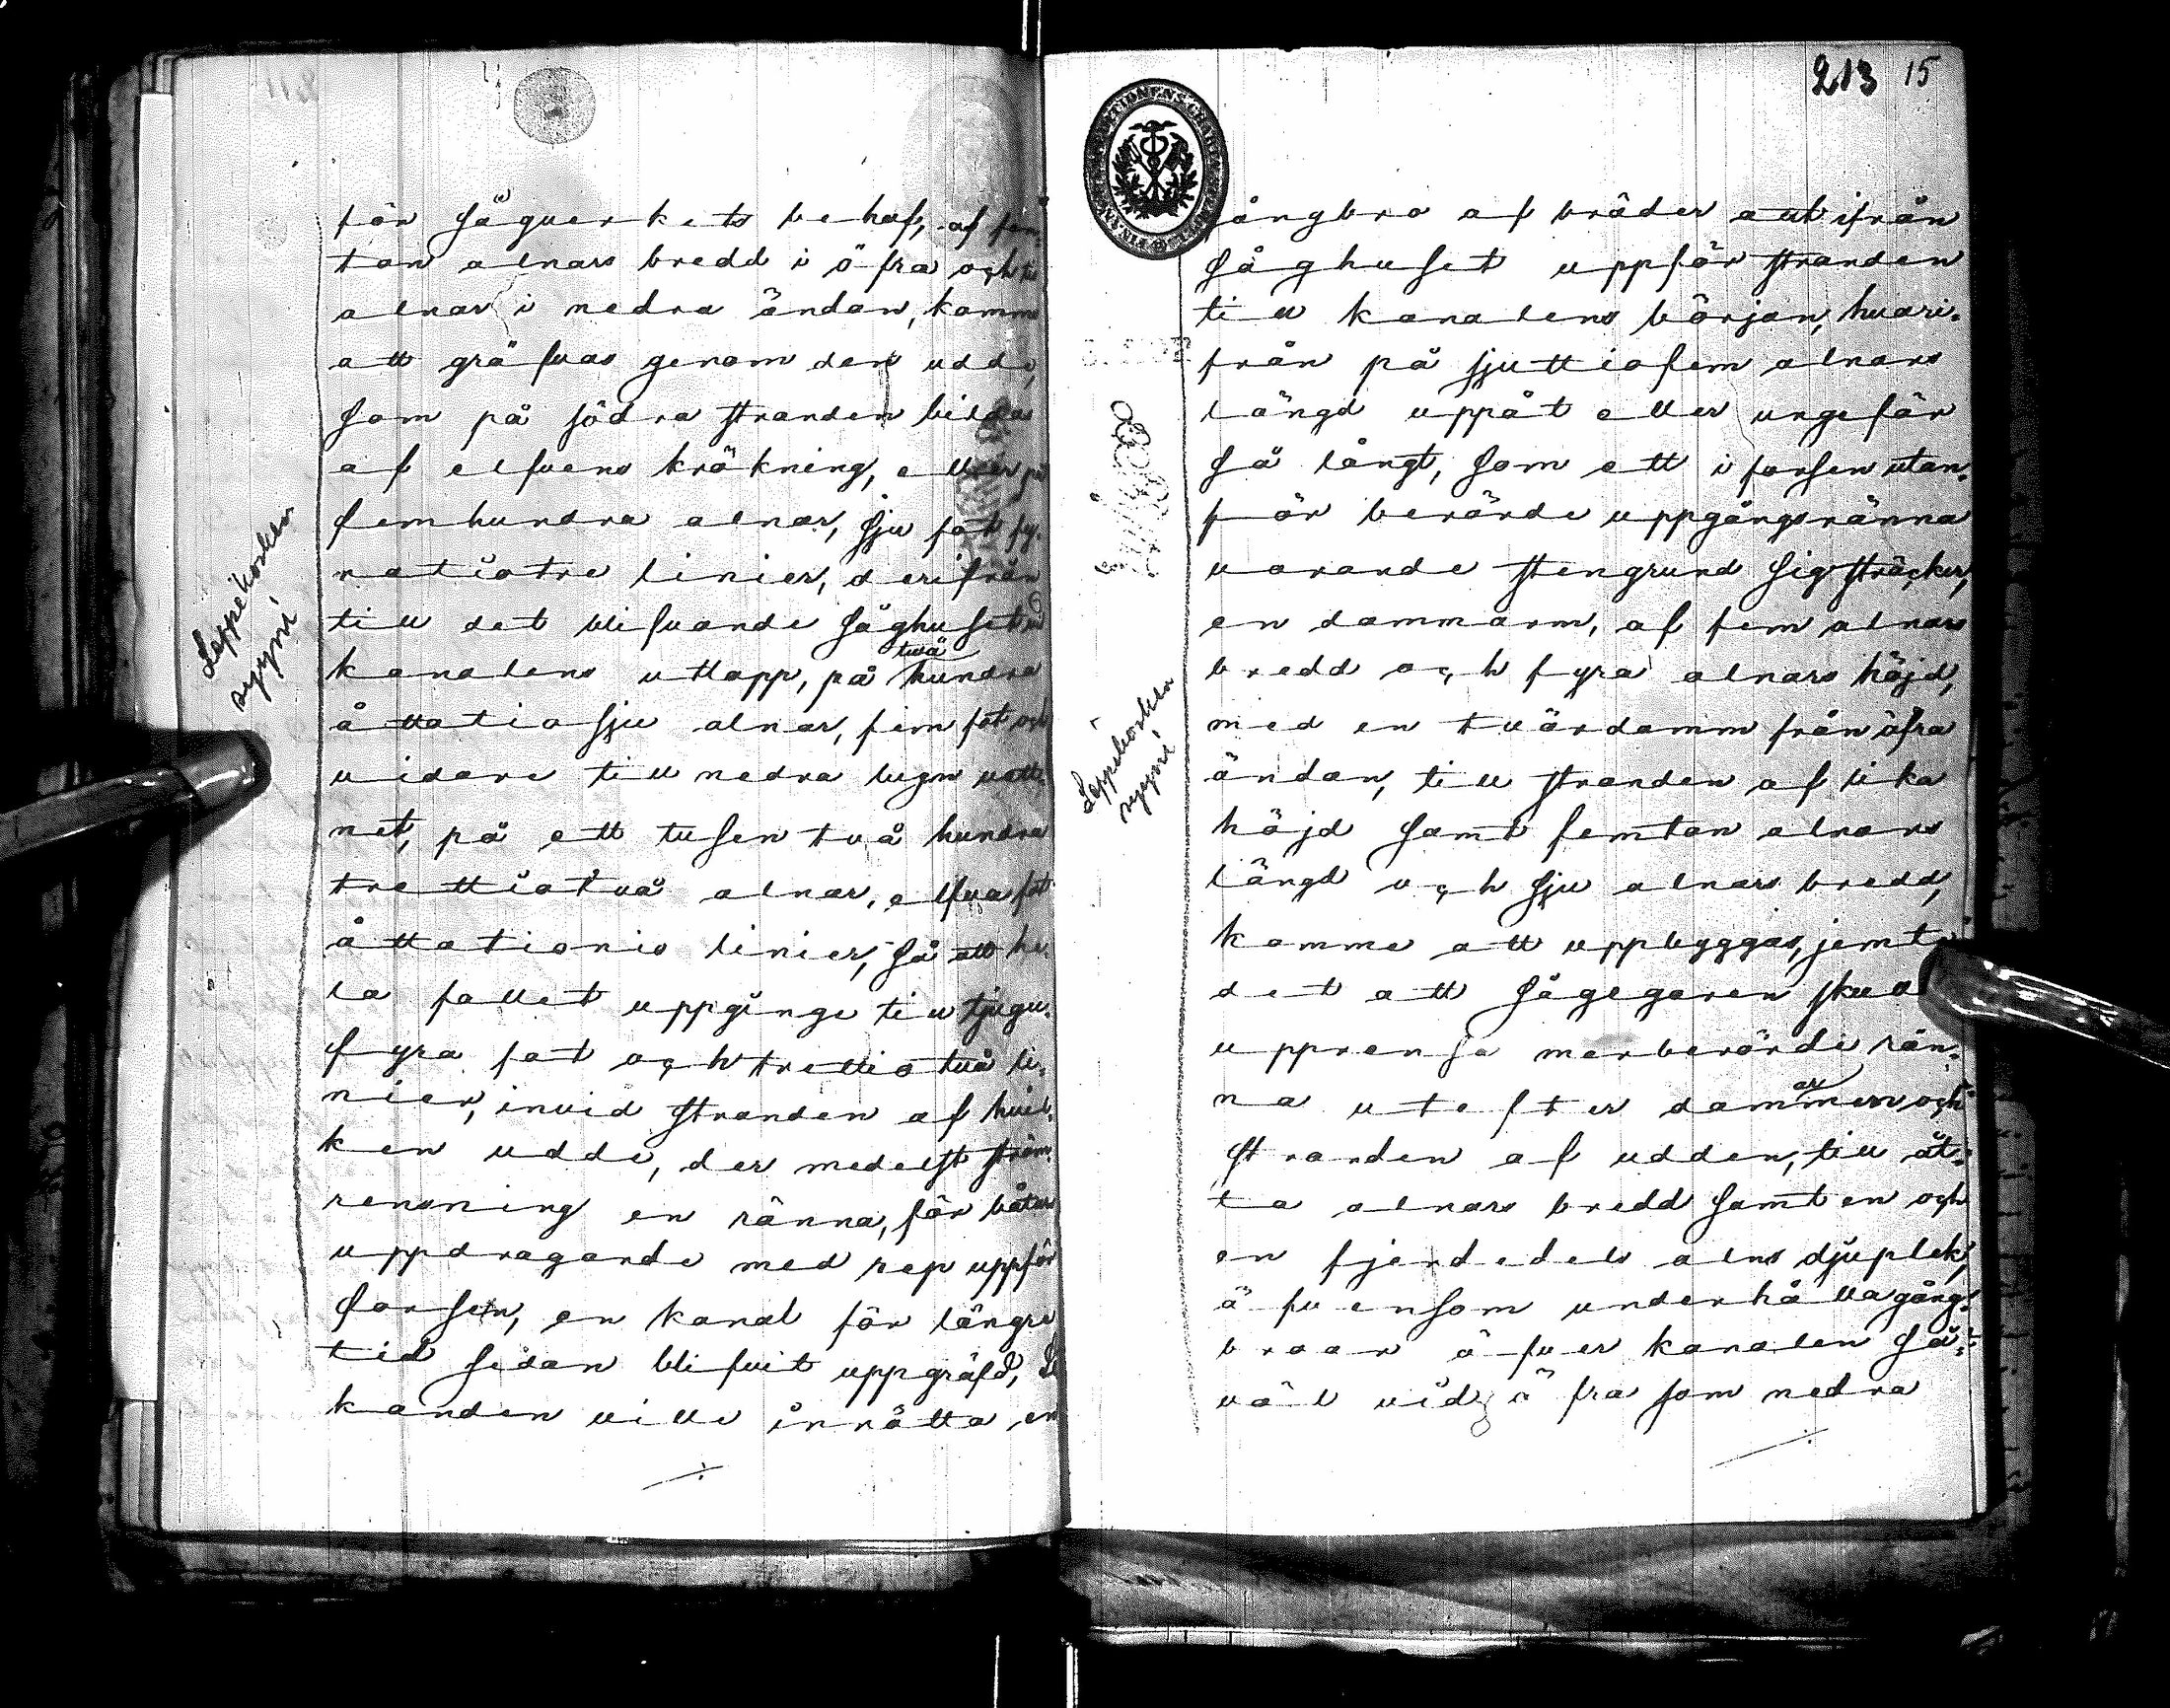 för Sågverkets behof, af fem=
ton alnars bredd i öfra och
alnar i nedra ändan, komme
att gräfvas genom den udde,
Som på södra stranden bildas
af elfvens krökning, eller på
femhundra alnar, sju fot fy=
ratiotre linier, derifrån
till det blifvande Såghuset vid
kanalens utlopp, på två hundra
åttatiosju alnar, fem fot och
vidare till nedra lugn vatt=
net, på ett tusen två hundra
trettiotvå alnar, elfva fot
åttationio linier, Så att he=
la fallet uppginge till tjugu=
fyra fot och trettiotvå li=
nier, invid Stranden af hvil=
ken udde, der medelst ström=
rensning en ränna, för båtars
uppdragande med rep uppför
forsen, en kanal för längre
tid sedan blifvit uppgräfd, Sö
kanden ville inrätta en
Leppikosken
syyni
213 15
gångbro af bräder allt ifrån
Såghuset uppför stranden
till kanalens början, hvari=
från på sjuttiofem alnars
längd uppåt eller ungefär
Så långt, Som ett i forsen utan=
för berörde uppgångsränna
varande stengrund Sig sträcker,
en dammarm, af fem alnars
bredd och fyra alnars höjd,
med en tvärdamm från öfra
ändan, till stranden af lika
höjd Samt femton alnars
längd och sju alnars bredd,
komme att uppbyggas, jemte
det att Sågegaren skulle
upprensa merberörde rän=
na utefter dammarmen och
Stranden af udden, till åt=
ta alnars bredd Samt en och
en fjerdedels alns djuplek,
äfvensom underhålla gång=
broar öfver kanalen Så=
väl vid öfra som nedra
Leppikosken
syyni